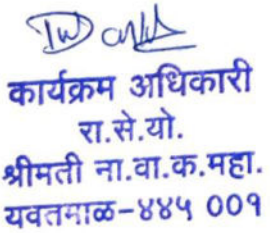 कार्यक्रम अधिकारी
रा.से.यो.
श्रीमती ना.वा.क.महा.
यवतमाळ-४४५ ००१